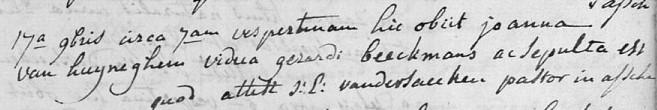 asch
17a 9bris circa 7am vespertinam hic obiit joanna
van huyneghem vidua gerardi beeckmans ac sepulta est
quod attest J: L: vandersaecken pastor in assche